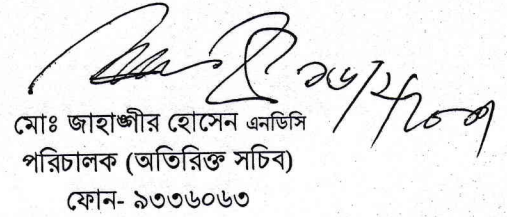 মোঃ জাহাঙ্গীর হোসেন এনডিসি
পরিচালক (অতিরিক্ত সচিব)
ফোন- ৯৩৩৬০৬৩